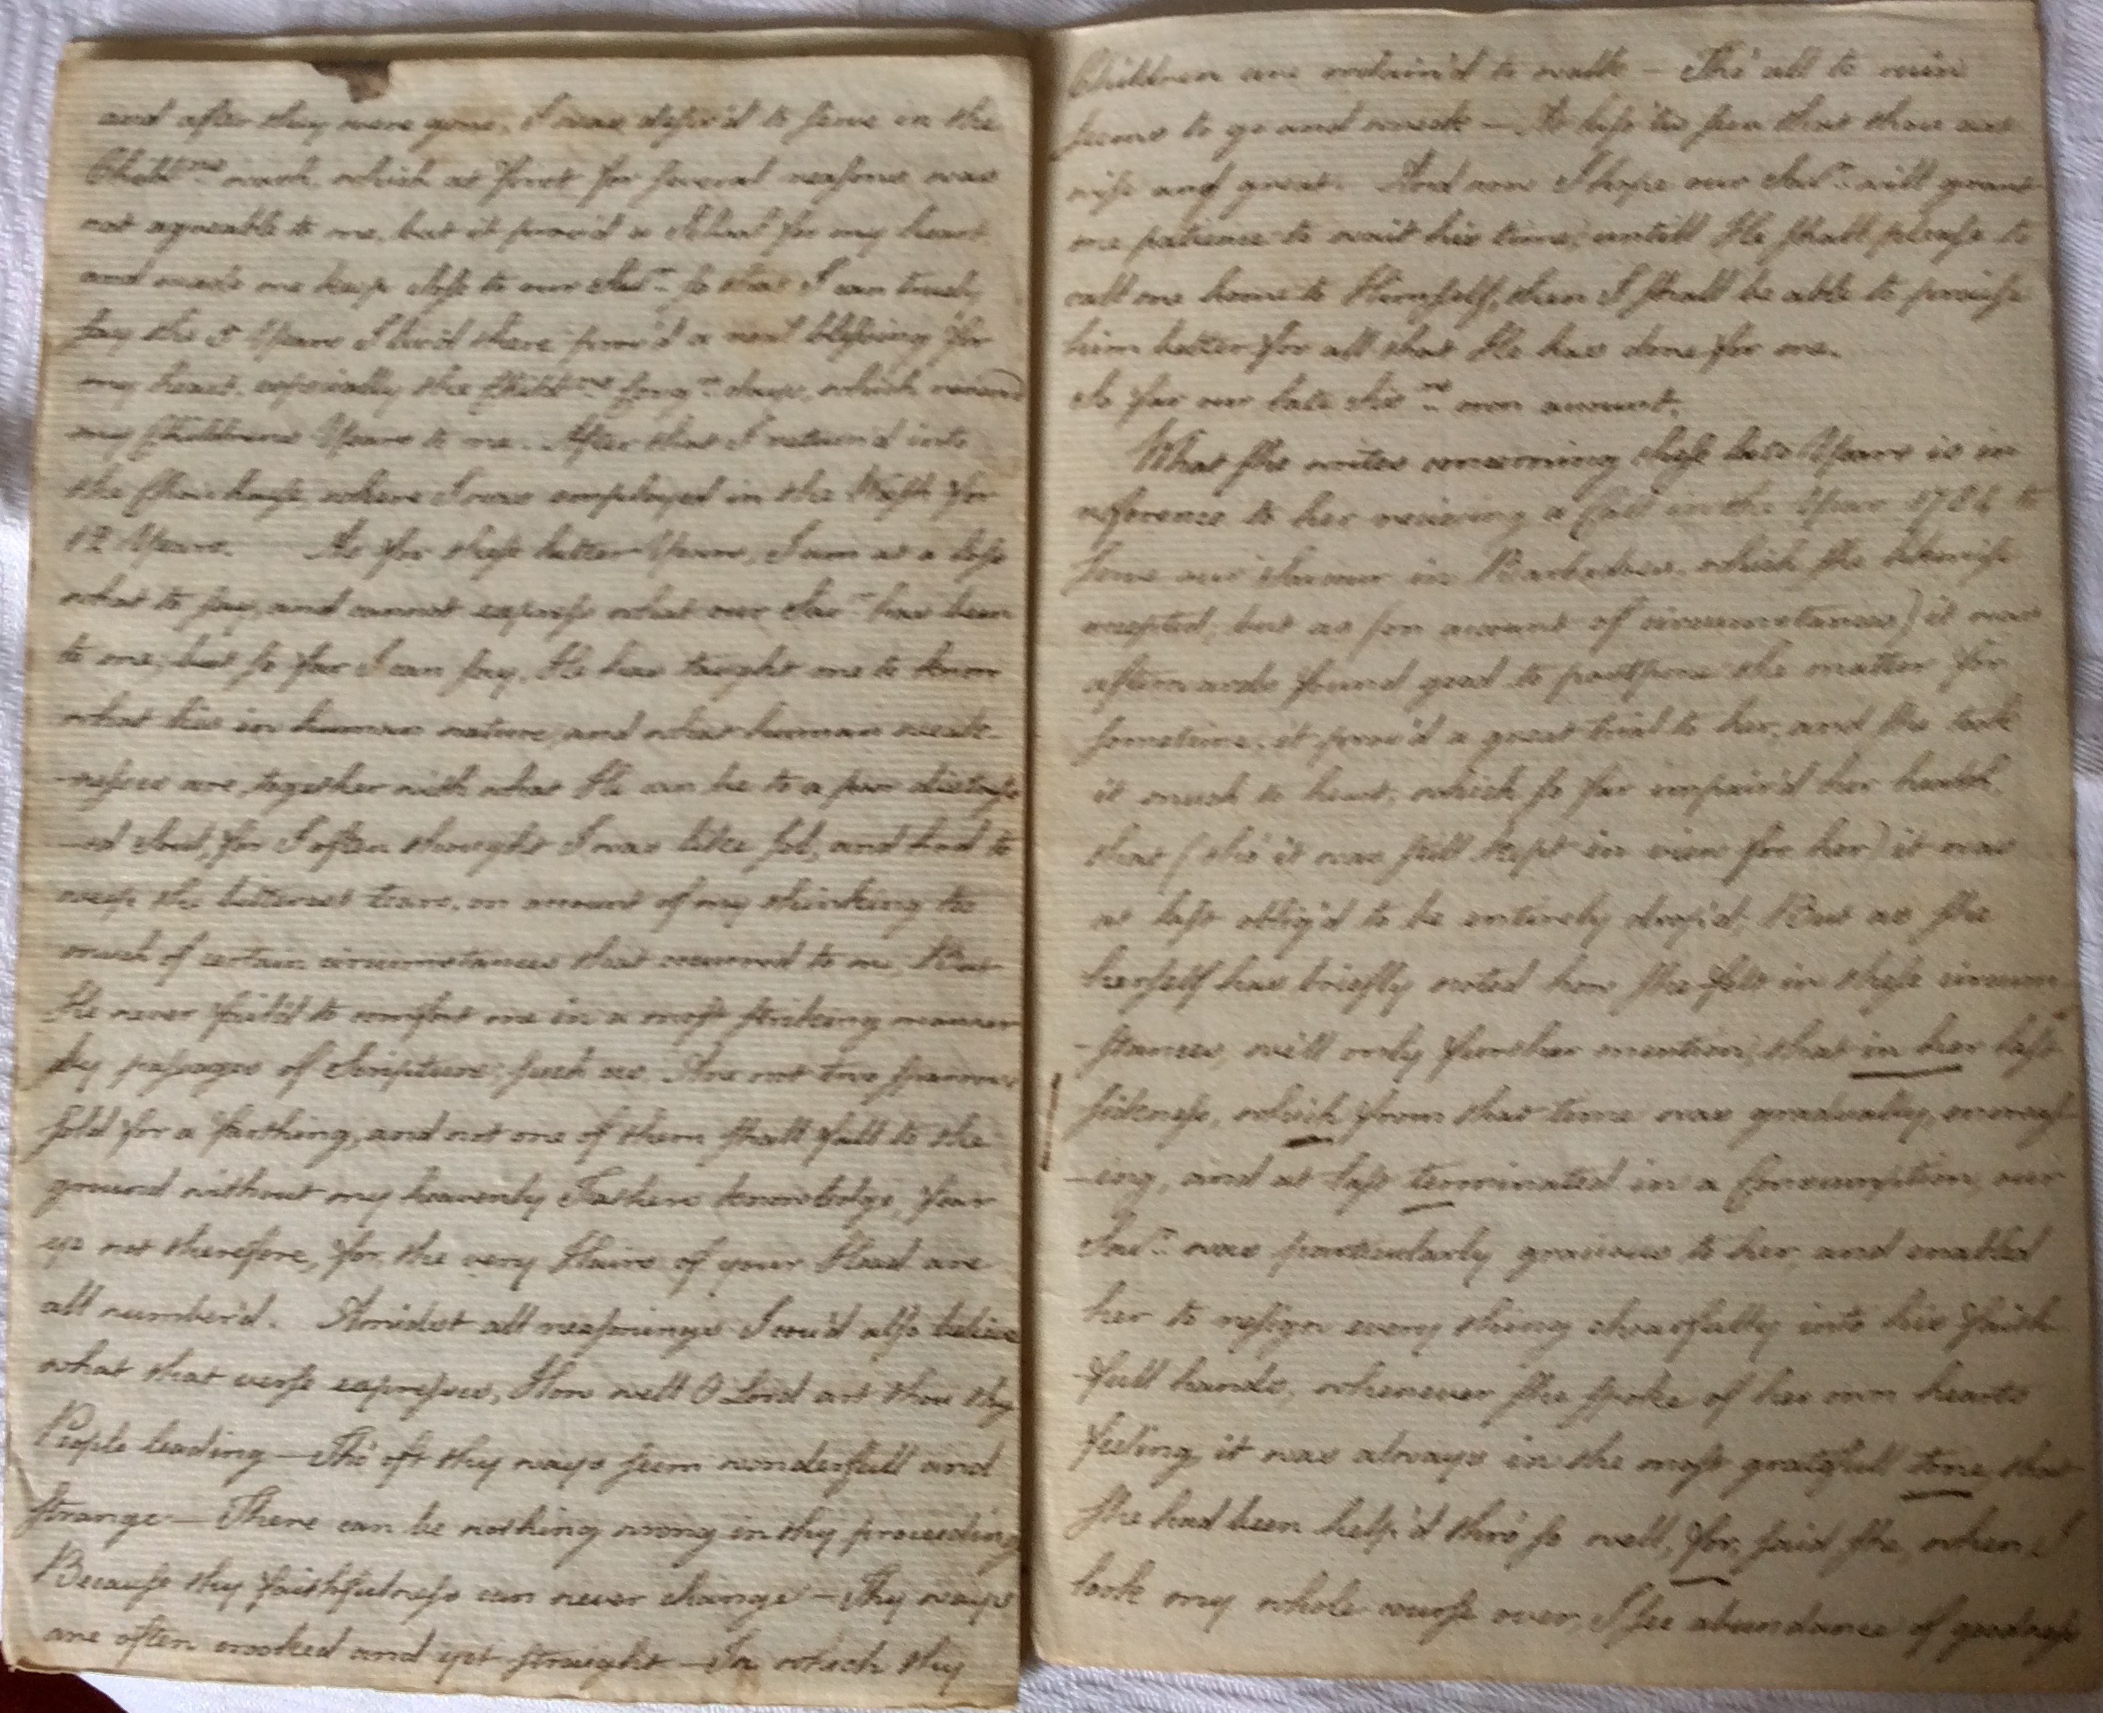 and after they were gone, I was desir'd to serve in the
Child.ns wash, which at first for several reasons was
not agreable to me, but it prov'd a School for my heart
and made me keep close to our Savr. so that I can truely
say the 5 Years I liv'd there prov'd a real blessing for
my heart, especially the Child.ns Congn. days, which renew'd
my Childrens Years to me. After that I return'd into
the Choir house, where I was employed in the Wash for
12 Years. As for these latter Years, I am at a loss
what to say, and cannot express what our Savr. has been
to me; but so far I can say, He has taught me to know
what lies in human nature, and what human weak-
-nesses are, together with what He can be to a poor distress-
-ed Soul, for I often thought I was like Job, and had to
weep the bitterest tears, on account of my thinking too
much of certain circumstances that occurred to me, But
He never fail'd to comfort me in a most striking manner
by passages of Scripture; such as, Are not two sparrows
sold for a farthing, and not one of them shall fall to the
ground without my heavenly Fathers knowledge, fear
ye not therefore, for the very Hairs of your Head are
all number'd. Amidst all reasonings I cou'd also believe
what that verse expresses, How well O Lord art thou thy
People leading — Tho' oft thy ways seem wonderfull and
strange — There can be nothing wrong in thy proceeding
Because thy faithfulness can never change — Thy ways
are often crooked and yet straight — In which thy
Children are ordain'd to walk — Tho' all to ruin
seems to go and wreck — At last tis seen that thou art
wise and great. And now I hope our Savr. will grant
me patience to wait his time, untill He shall please to
call me home to Himself, then I shall be able to praise
him better for all that He has done for me.
So far our late Sisrs. own account.
What she writes concerning these last Years is in
reference to her receiving a Call in the Year 1786 to
serve our Saviour in Barbadoes, which she likewise
accepted, but as (on account of circumstances) it was
afterwards found good to postpone the matter for
sometime, it prov'd a great trial to her, and she took
it much to heart, which so far impair'd her health,
that (tho' it was still kept in view for her) it was
at last oblig'd to be entirely drop'd. But as she
herself has briefly noted how she felt in these circum
-stances, will only further mention, that in her last
sickness, which from that time was gradually encreas
-ing, and at last terminated in a Consumption, our
Savr. was particularly gracious to her, and enabled
her to resign every thing chearfully into his faith
-full hands, whenever she spoke of her own hearts
feeling, it was always in the most gratefull tone, that
she had been help'd thro' so well, for, said she, when I
look my whole course over, I see abundance of goodness